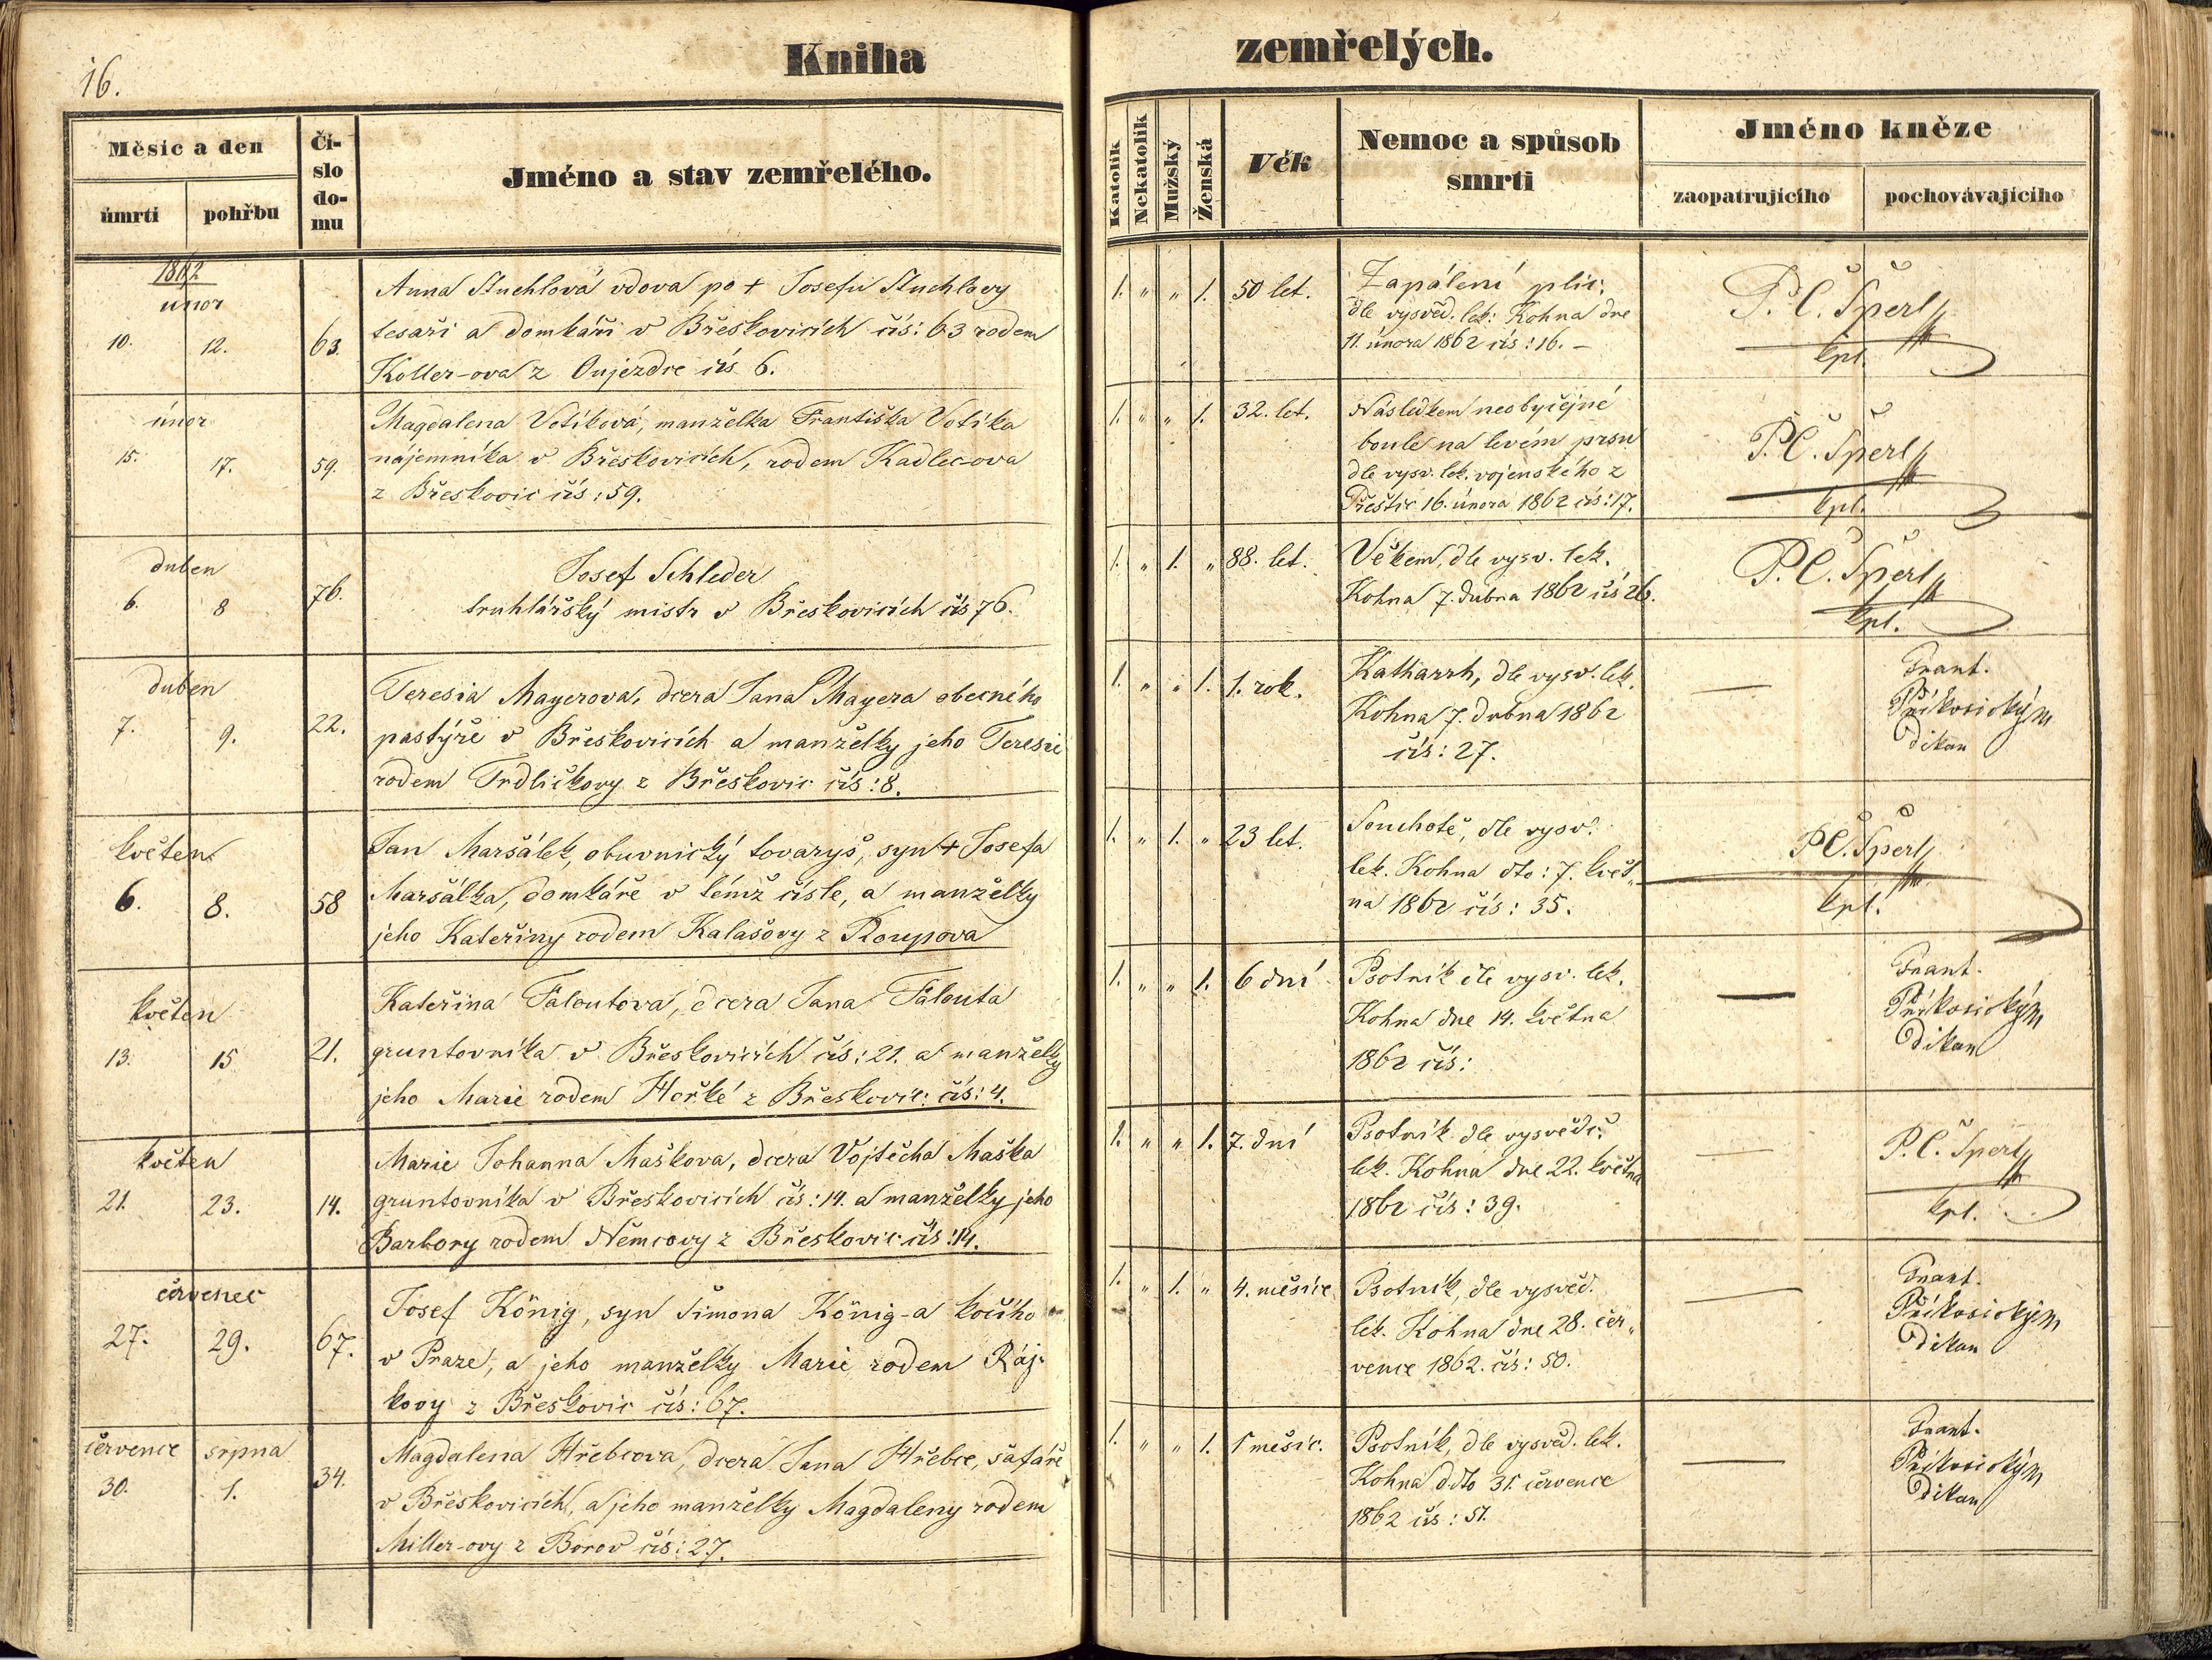 16.
Kniha zemřelých.
Měsíc a den
úmrtí
pohřbu
Čí-
slo
do-
mu
Jméno a stav zemřelého.
Katolík
Nekatolík
Mužský
Ženská
Věk
Nemoc a spůsob
smrti
Jméno kněze
zaopatrujícího
pochovávajícího
1862
únor
10. 12. 63.
Anna Stuchlová vdova po + Josefu Stuchlovy
tesaři a domkáři v Břeskovicích čís: 63 rodem
Koller-ova z Oujezdce čís 6.
1. " " 1. 50 let.
Zapálení plic.
dle vysvěd. lek: Kohna dne
11. února 1862 čís: 16. –
P. Č. Šperl
kpl.
únor
15. 17. 59.
Magdalena Votíková, manželka Františka Votíka
nájemníka v Břeskovicích, rodem Kadlec-ova
z Břeskovic čís: 59.
1. " " 1. 32. let.
Následkem neobyčéjné
boule na levém prsu
dle vysv. lek. vojenského z
Přeštic 16. února 1862 čís: 17.
P. Č. Šperl
kpl.
duben
6. 8 76.
Josef Schleder
truhlářský mistr v Břeskovicích čís 76.
1. " 1. " 88. let.
Věkem, dle vysv. lek.
Kohna 7. dubna 1862 čís 26.
P. Č. Šperl
kpl.
duben
7. 9. 22.
Teresia Mayerova, dcera Jana Mayera obecného
pastýře v Břeskovicích a manželky jeho Teresie
rodem Trdličkovy z Břeskovic čís: 8.
1. " " 1. 1. rok.
Katharrh, dle vysv. lek.
Kohna 7. dubna 1862
čís: 27.
—
Frant.
Příkosickým
Děkan
květen
6. 8. 58
Jan Maršálek, obuvnický tovaryš, syn + Josefa
Maršálka, domkáře v témž čísle, a manželky
jeho Kateřiny rodem Kalašovy z Roupova
1. " 1. " 23 let.
Souchotě, dle vysv.
lek. Kohna dto: 7. květ„
na 1862 čís: 35.
P Č. Šperl
kpl.
květen
13. 15 21.
Kateřina Faloutová, dcera Jana Falouta
gruntovníka v Břeskovicích čís: 21. a manželky
jeho Marie rodem Hořké z Břeskovic: čís: 4.
1. " " 1. 6 dní
Psotník dle vysv. lek.
Kohna dne 14. května
1862 čís:
—
Frant.
Příkosickým
Děkan
květen
21. 23. 14.
Marie Johanna Maškova, dcera Vojtěcha Maška
gruntovníka v Břeskovicích čís: 14. a manželky jeho
Barbory rodem Němcovy z Břeskovic čís: 14.
1. " " 1. 7. dní
Psotník dle vysvědč.
lek. Kohna dne 22. května
1862 čís: 39.
—
P. Č. Šperl
kpl.
červenec
27. 29. 67.
Josef König, syn Šimona König-a kočího
v Praze, a jeho manželky Marie rodem Ráj-
kovy z Břeskovic čís: 67.
1. " 1. " 4. měsíce
Psotník, dle vysvěd.
lek. Kohna dne 28. čer„
vence 1862. čís: 50.
—
Frant.
Příkosickým
Děkan
července srpna
30. 1. 34.
Magdalena Hřebcova, dcera Jana Hřebce, šafáře
v Břeskovicích, a jeho manželky Magdaleny rodem
Miller-ovy z Borov čís: 27.
1. " " 1. 1 měsíc.
Psotník, dle vysvěd. lek.
Kohna ddto 31. července
1862 čís: 51.
—
Frant.
Příkosickým
Děkan